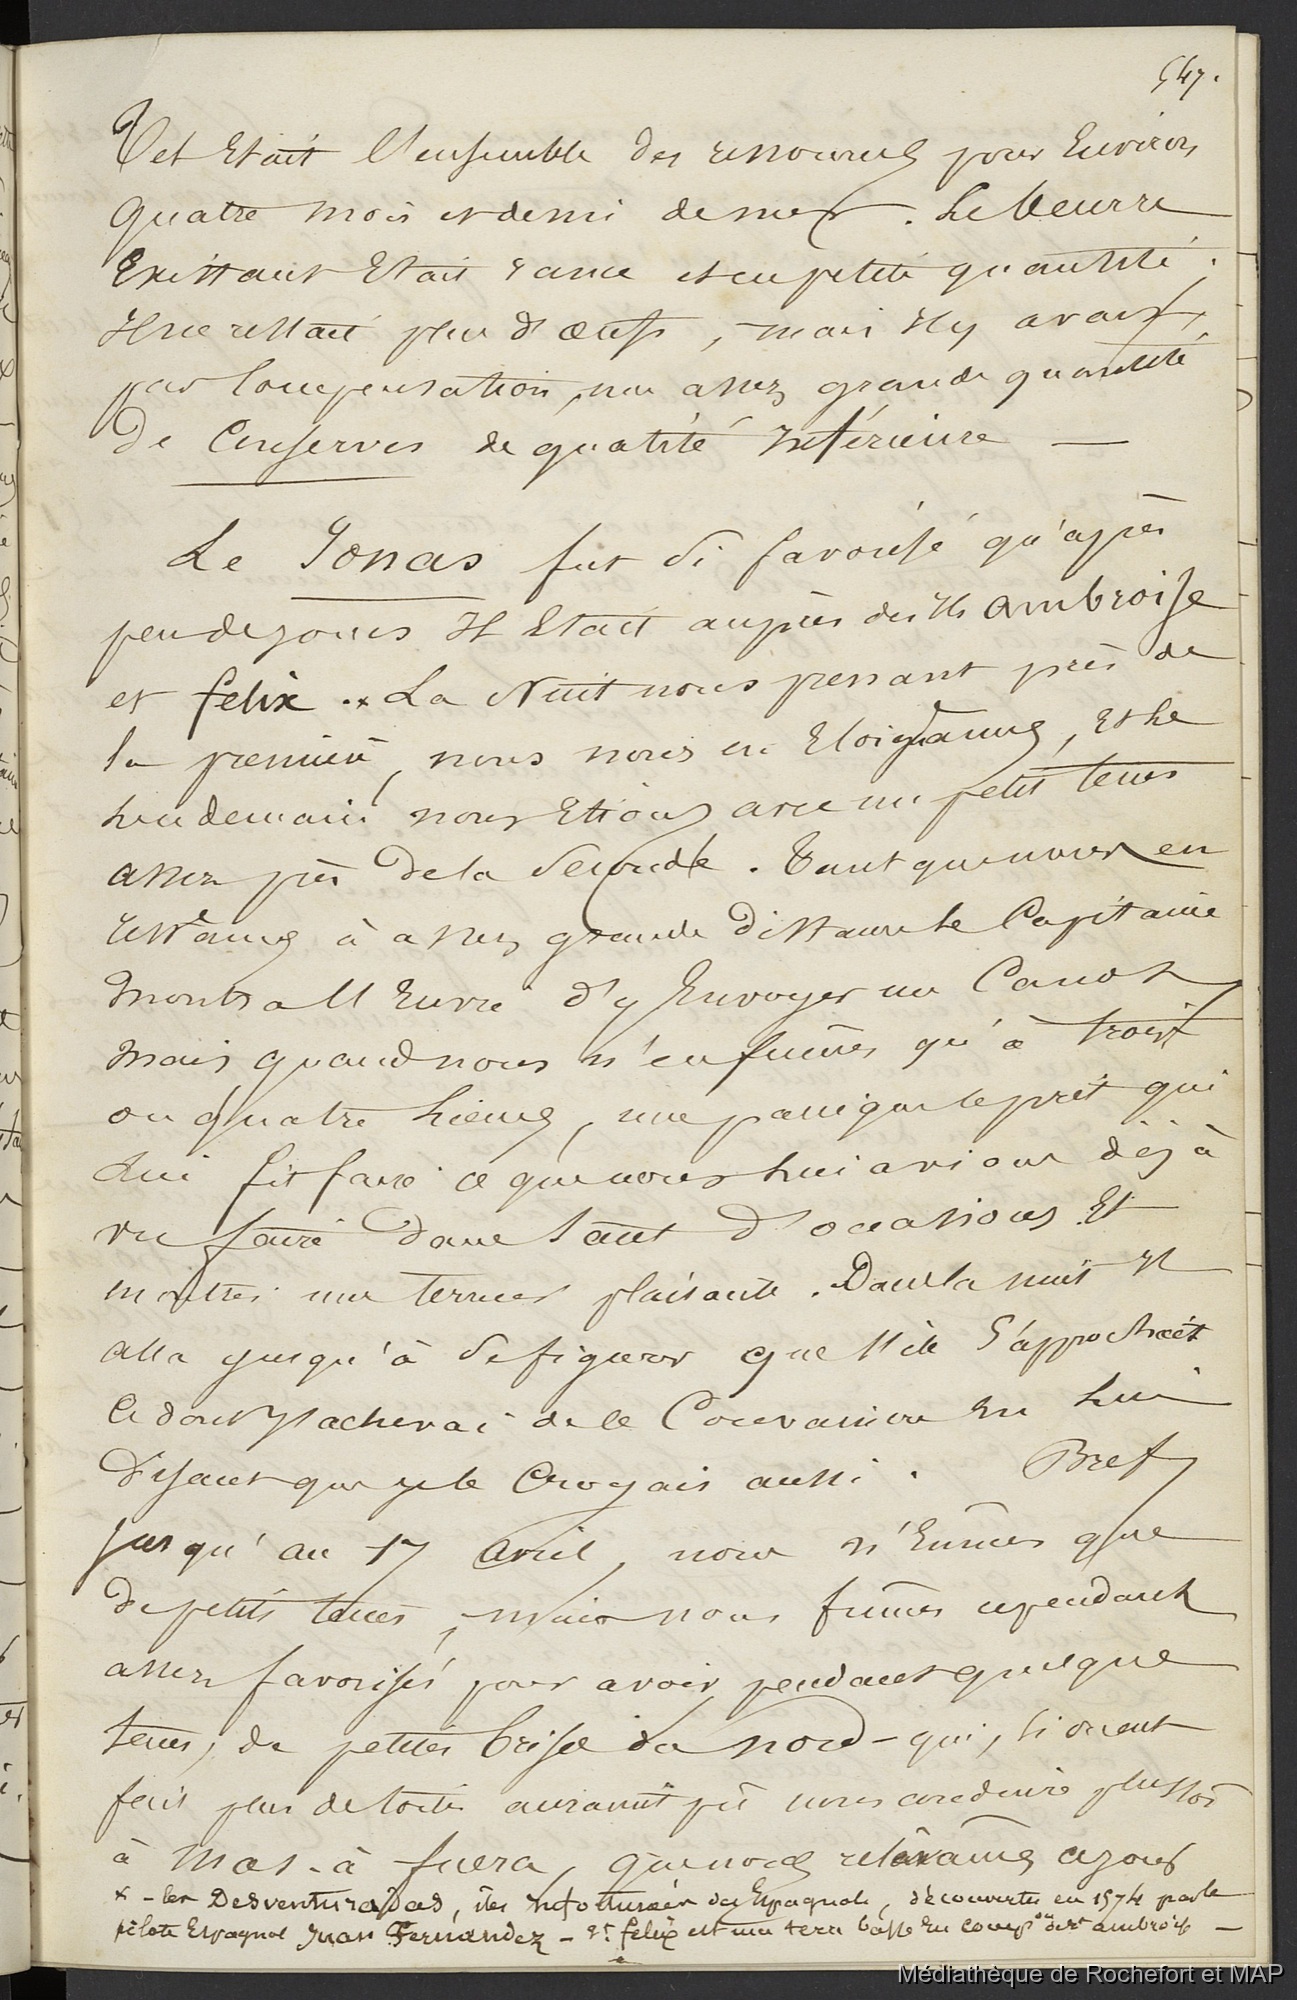 547.
Tel Etait l'ensemble des ressources pour Environ
quatre mois et demi de mer. Le beurre
Existant Etait rance et en petite quantité;
Il ne restait plus d'œufs, mais Il y avait,
par Compensation, une assez grande quantité
de Conserves de qualité Inférieure —
Le Jonas fut si favorisé qu'après
peu de jours Il Etait auprès des Is Ambroise
et felix .* La Nuit nous prenant près de
la première, nous nous en Eloignames, Et Le
Lendemain nous Etions avec un petit tems
assez près de la Seconde. Tant que nous en
restames à assez grande Distance le Capitaine
montra l'Envie d'y Envoyer un Canot
mais quand nous n'en fumes qu'à trois
ou quatre Lieues, une panique le prit qui
Lui fit faire ce que nous Lui avions déjà
vu faire dans tant d'occasions Et
montrer une terreur plaisante. Dans la nuit Il
alla jusqu'à se figurer que l'ile s'approchait
Ce dont J'achevai de le Convaincre En Lui
Disant que je le Croyais aussi. Bref
jusqu'au 17 Avril, nous n'Eumes que
de petits tems, mais nous fumes cependant
assez favorisés pour avoir pendant quelque
tems, de petites brises du nord - qui, si on eut
fait plus de toile auraient pu nous conduire plustôt
à Mas-à fuera, que nous relevâmes ce jour
* - les Desventuradas, iles Infortunées des Espagnols, découvertes en 1574 par le
pilote Espagnol Juan Fernandez - St. felix est une terre basse En comp.on de St ambroise —
Médiathèque de Rochefort et MAP